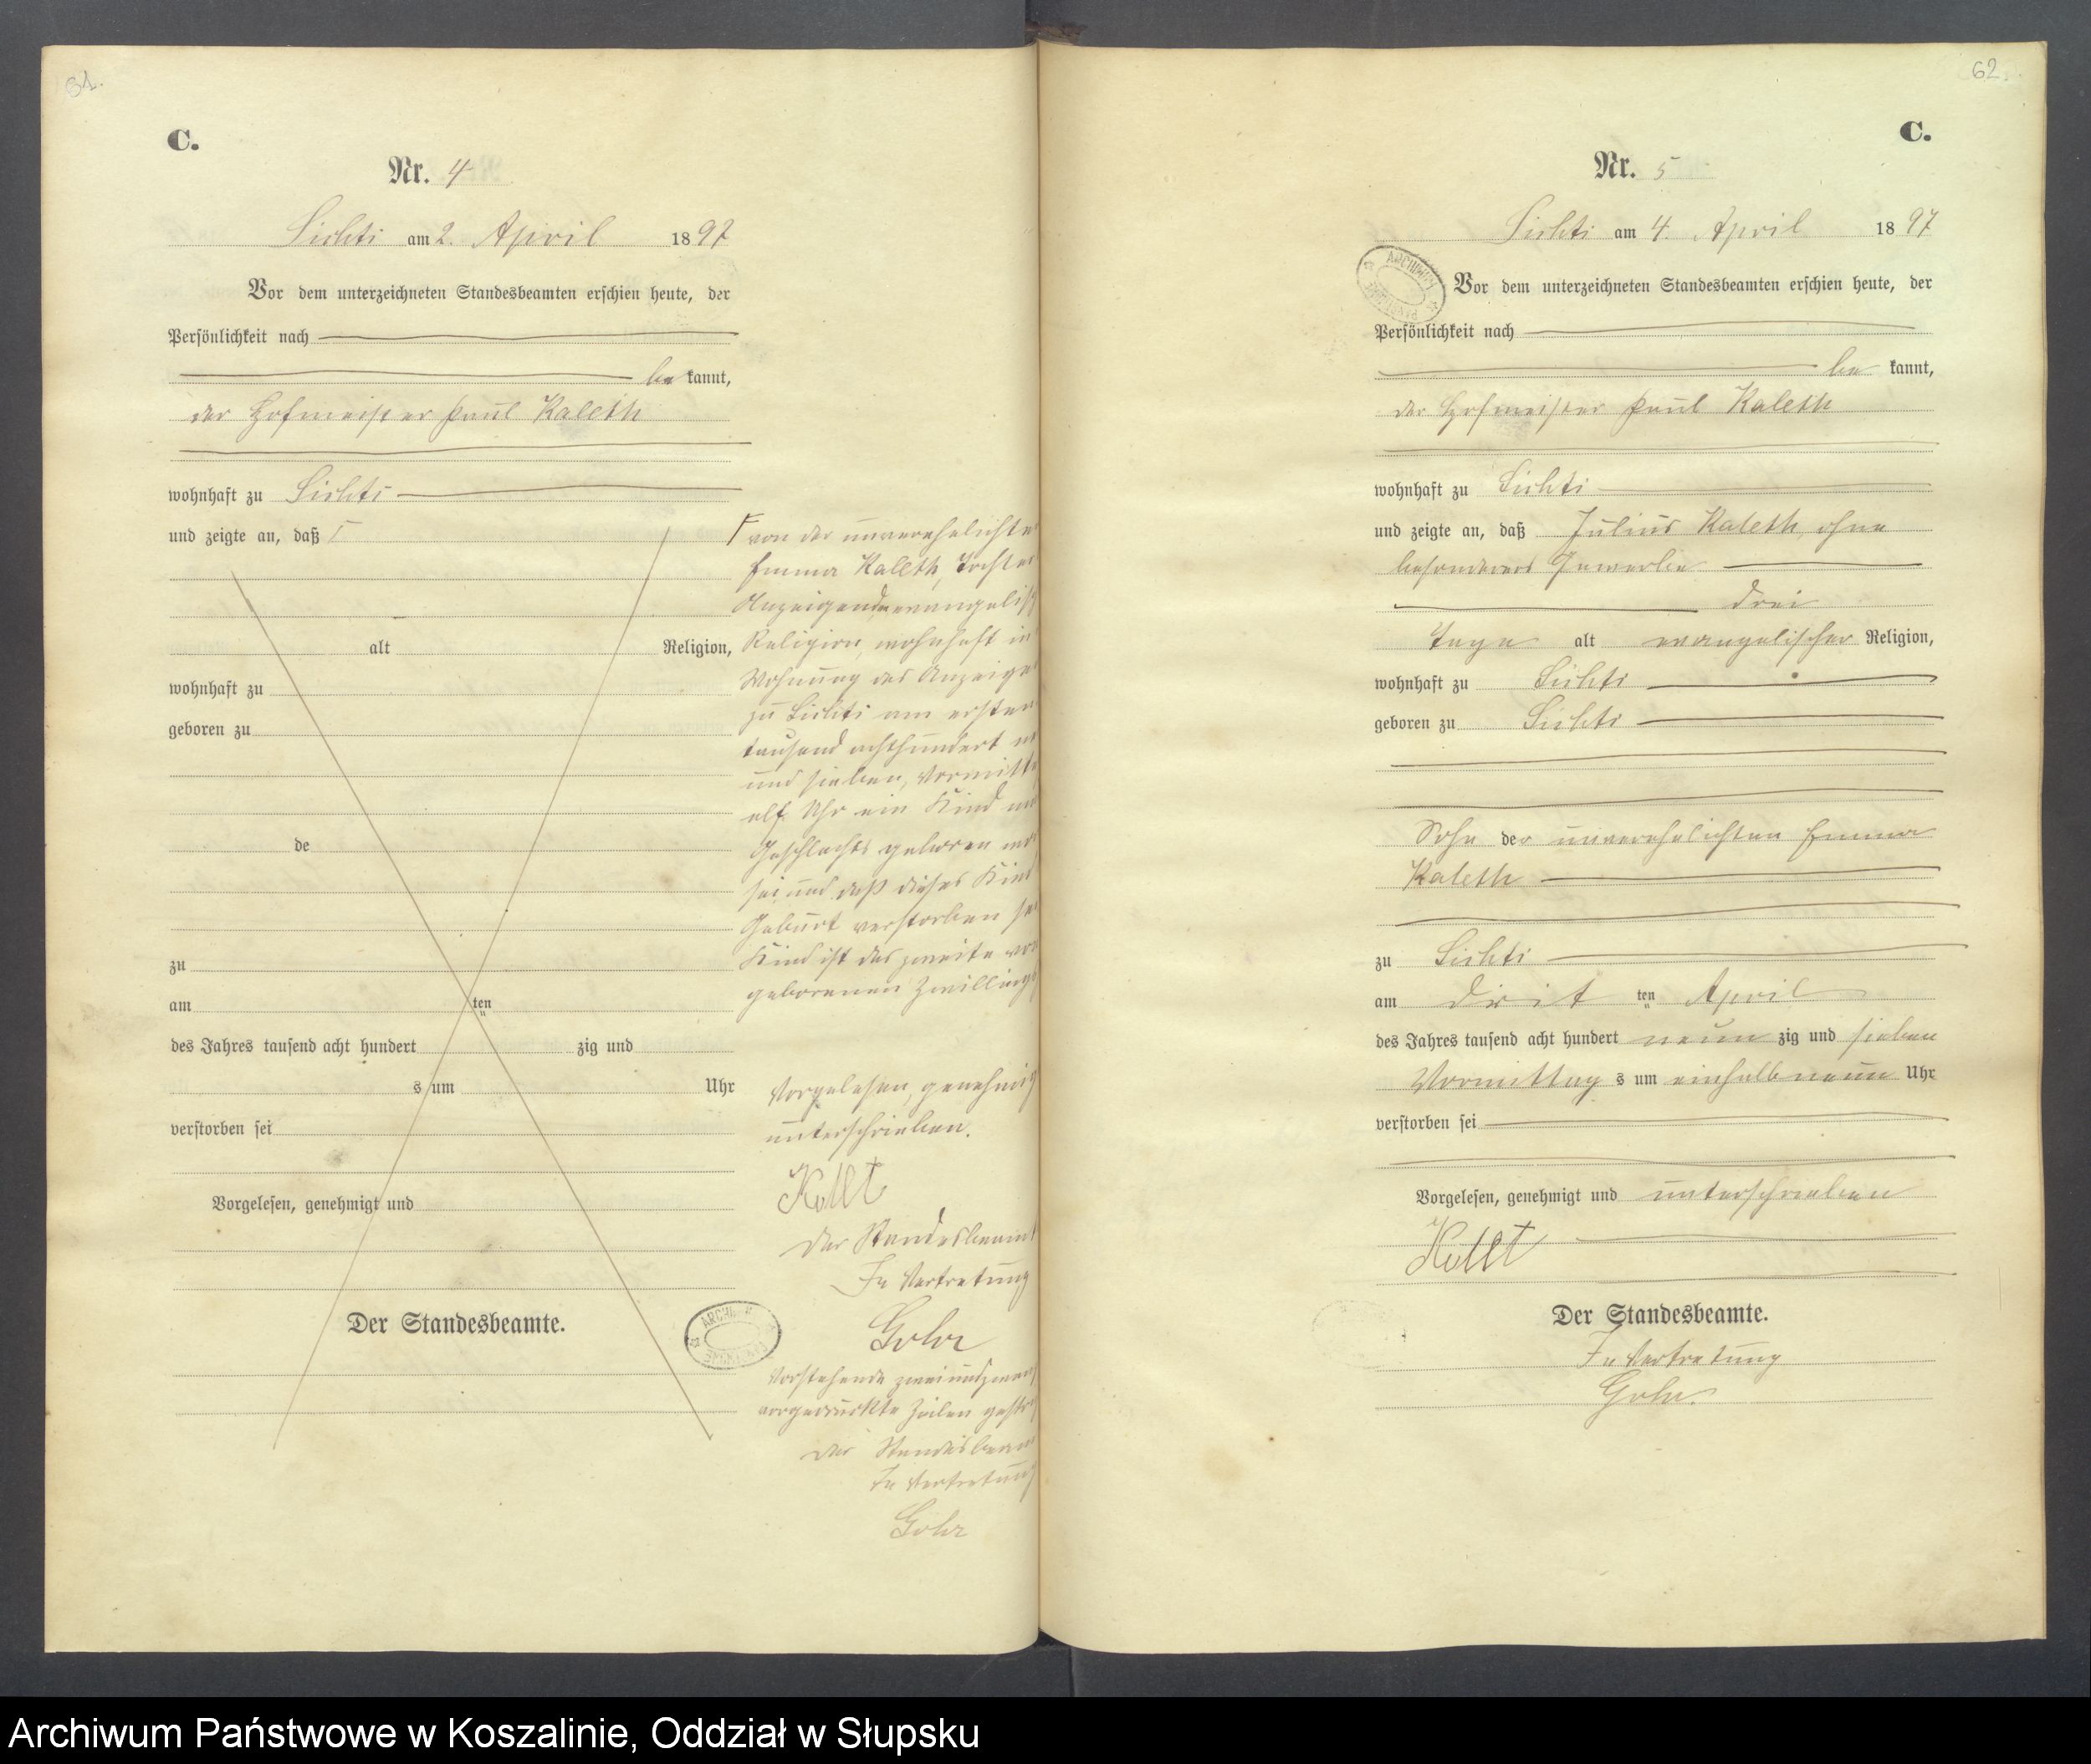 C.
Nr. 4
am 2. April 1897
Vor dem unterzeichneten Standesbeamten erschien heute, der
Persönlichkeit nach
be kannt,
der Hofmeister Paul Kaleth
wohnhaft zu
und zeigte an, daß Γ
alt Religion,
wohnhaft zu
geboren zu
de
zu
am ten
des Jahres tausend acht hundert zig und
s um Uhr
verstorben sei
Vorgelesen, genehmigt und
Der Standesbeamte.
Γ von der unverehelichte
Emma Kaleth, Tochter
Anzeigende, evangelisch
Religion, wohnhaft in
Wohnung des Anzeige
zu am ersten
tausend achthundert
und sieben, Vormitt
elf Uhr ein Kind
Geschlechts geboren
sei und daß dieses Kind
Geburt verstorben
Kind ist das zweite von
geborenen Zwilling
Vorgelesen, genehmig
unterschrieben.
Der Standesbeamt
In Vertretung
Gohr
Vorstehende zweiundzwan
vorgedruckte Zeilen gestr
Der Standesbeam
In Vertretung
Gohr
62
C.
Nr. 5
am 4. April 1897
Vor dem unterzeichneten Standesbeamten erschien heute, der
Persönlichkeit nach
be kannt,
der Hofmeister Paul Kaleth
wohnhaft zu
und zeigte an, daß Julius Kaleth, ohne
besonderes Gewerbe
drei
Tage alt evangelischer Religion,
wohnhaft zu
geboren zu
Sohn der unverehelichten Emma
Kaleth
zu
am drit ten April
des Jahres tausend acht hundert neun zig und sieben
Vormittag s um einhalb neun Uhr
verstorben sei
Vorgelesen, genehmigt und unterschrieben
Der Standesbeamte.
In Vertretung
Gohr.
Archiwum Państwowe w Koszalinie, Oddział w Słupsku